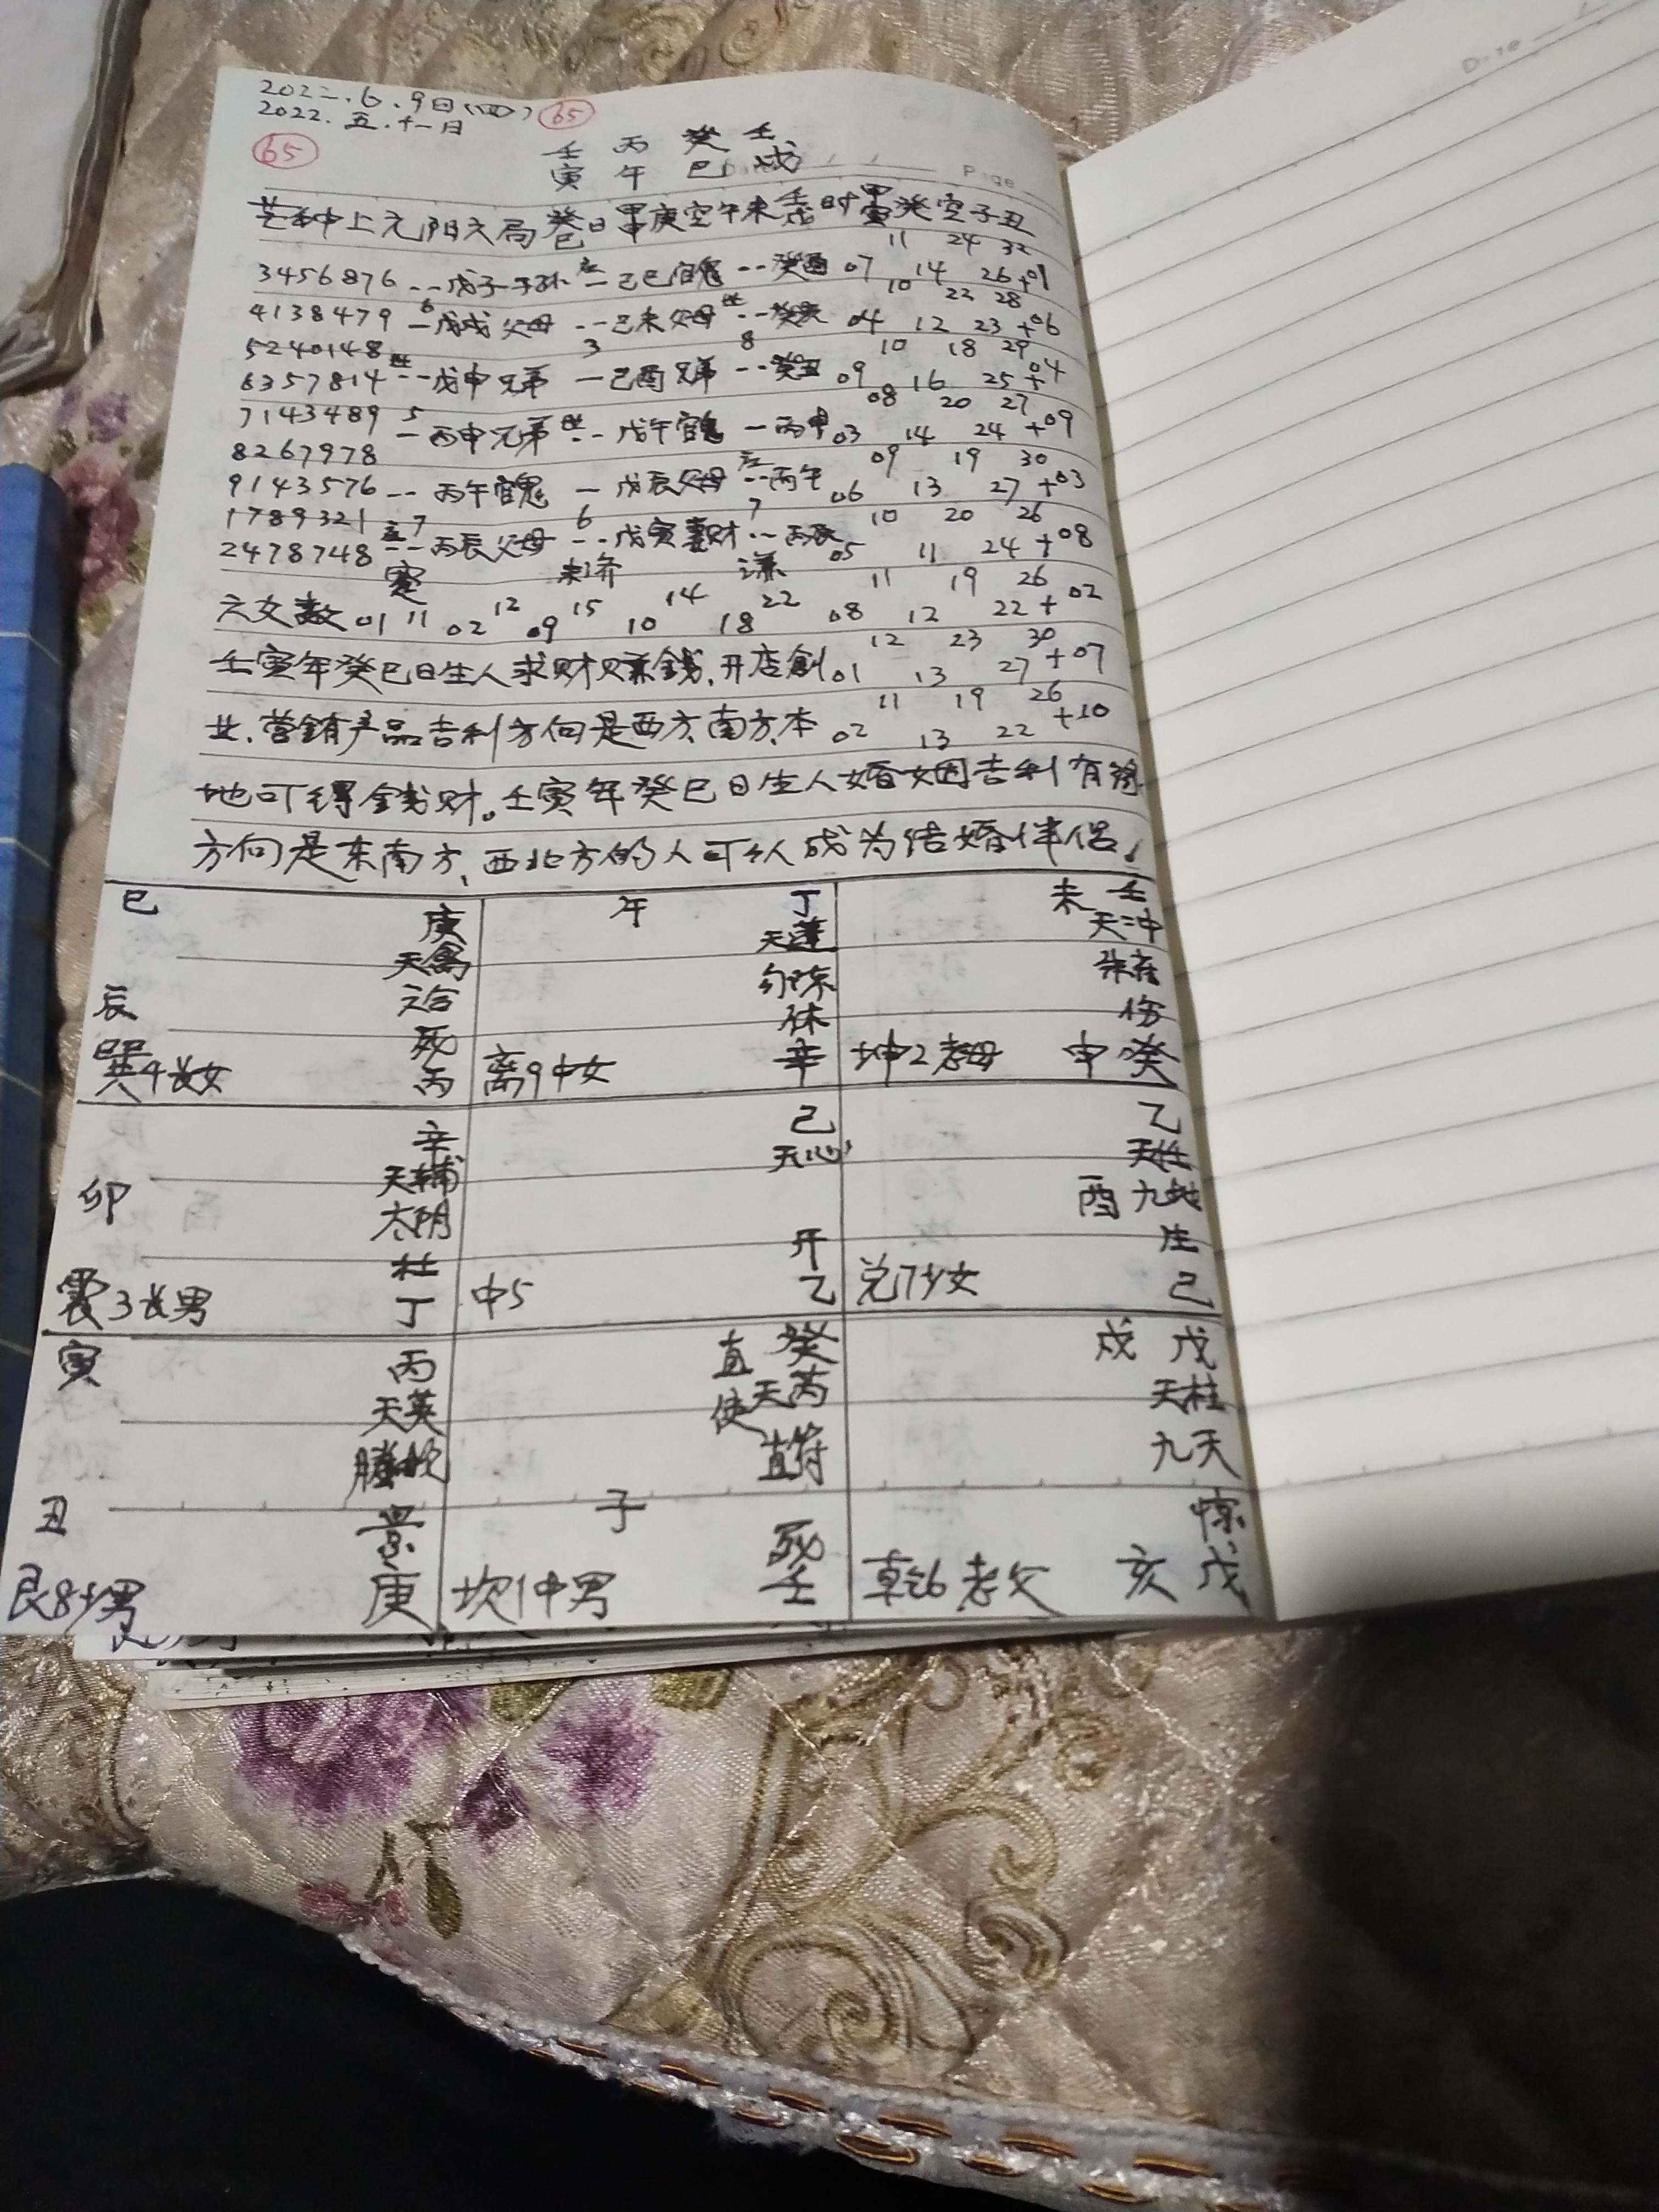 2022.6.9日(四) 65
2022.五.十一日
65
壬 丙 癸 壬
寅 午 巳 戌
Page
Date
芒种上元阳六局癸巳日甲申庚空午未壬戌时甲寅癸空子丑
11 24 32
3456876 -- 戊子子孙 应 一 己巳官鬼 -- 癸酉 07 14 26 +01
10 23 28
4138479 6 一 戊戌父母 -- 己未父母 世 -- 癸亥 04 12 23 +06
5240148 3 8 10 18 29
6357814 世 -- 戊申兄弟 一 己酉兄弟 -- 癸丑 09 16 25 +04
7143489 5 08 20 27
一 丙申兄弟 世 -- 戊午官鬼 一 丙申 03 14 24 +09
8267978 09 19 30
9143576 -- 丙午官鬼 一 戊辰父母 应 -- 丙午 06 13 27 +03
1789321 7 6 7 10 20 26
2478748 应 -- 丙辰父母 -- 戊寅妻财 -- 丙辰 05 11 24 +08
蹇 未济 谦 11 19 26
六爻数 01 11 02 12 09 15 10 14 18 22 08 12 22 +02
12 23 30
壬寅年癸巳日生人求财赚钱,开店创 01 13 27 +07
11 19 26
业、营销产品吉利方向是西方、南方、本 02 13 22 +10
地可得钱财。壬寅年癸巳日生人婚姻吉利有缘
方向是东南方、西北方的人可以成为结婚伴侣。
巳 庚 午 丁 未 壬
天禽 天蓬 天冲
辰 六合 勾陈 朱雀
死 休 伤
巽4长女 丙 离9中女 辛 坤2老母 申 癸
辛 己 乙
天辅 天心 天任
卯 太阴 酉 九地
杜 开 生
震3长男 丁 中5 乙 兑7少女 己
寅 丙 直 癸 戌 戊
天英 使 天芮 天柱
螣蛇 直符 九天
丑 景 子 死 惊
艮8少男 庚 坎1中男 壬 乾6老父 亥 戊
Date